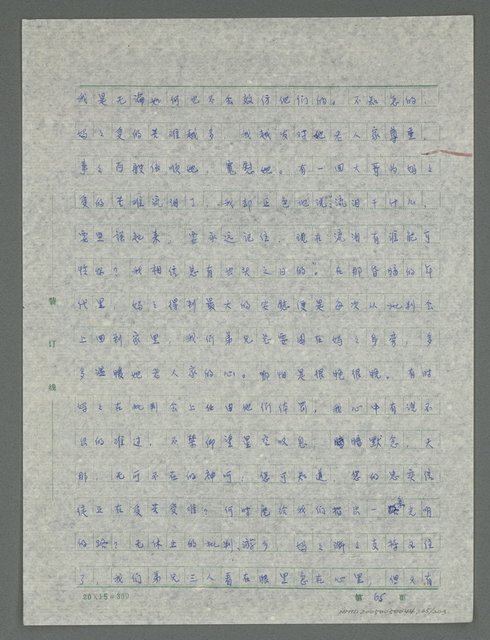 我是无论如何也不会效仿他们的。不知怎的,
妈妈受的苦难越多,我越发对她老人家尊重,
事事百般依顺她,宽慰她。有一回大哥为妈妈
受的苦难流泪了,我却正色地说:“流泪干什么,
要坚强起来,要永远记住,现在流泪有谁能可
怜你?我相信总有出头之日的”。在那昏暗的年
代里,妈妈得到最大的安慰便是每次从批判会
上回到家里,我们弟兄总要围在妈妈身旁,多
多温暖她老人家的心。哪怕是很晚很晚。有时
妈妈在批判会上给他们体罚,我心中有说不
出的难过,不禁仰望星空叹息,暗暗默念:天
那,无所不在的神呵,您可知道,您的忠实信
徒正在受苦受难?何时能给我们指出一条光明
的路?无休止的批判、游乡,妈妈渐渐支持不住
了,我们弟兄三人看在眼里急在心里,但又有
20×15=300
第 65 页
装
订
线